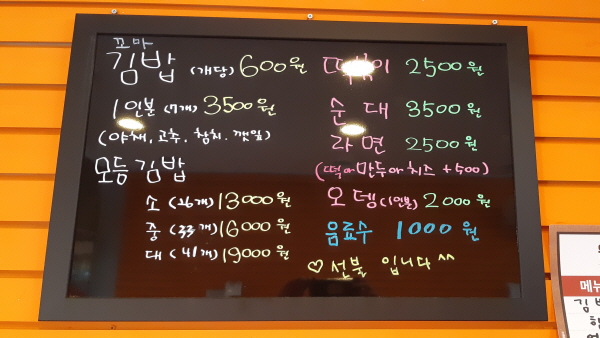 꼬마
김밥 (개당) 600원
1인분 (7개) 3500원
(야채, 고추, 참치, 깻잎)
모듬김밥
소 (26개) 13000원
중 (33개) 16000원
대 (41개) 19000원
떡볶이 2500원
순대 3500원
라면 2500원
(떡or만두or치즈 +500)
오뎅(1인분) 2000원
음료수 1000원
♡선불 입니다^^
메뉴
김밥